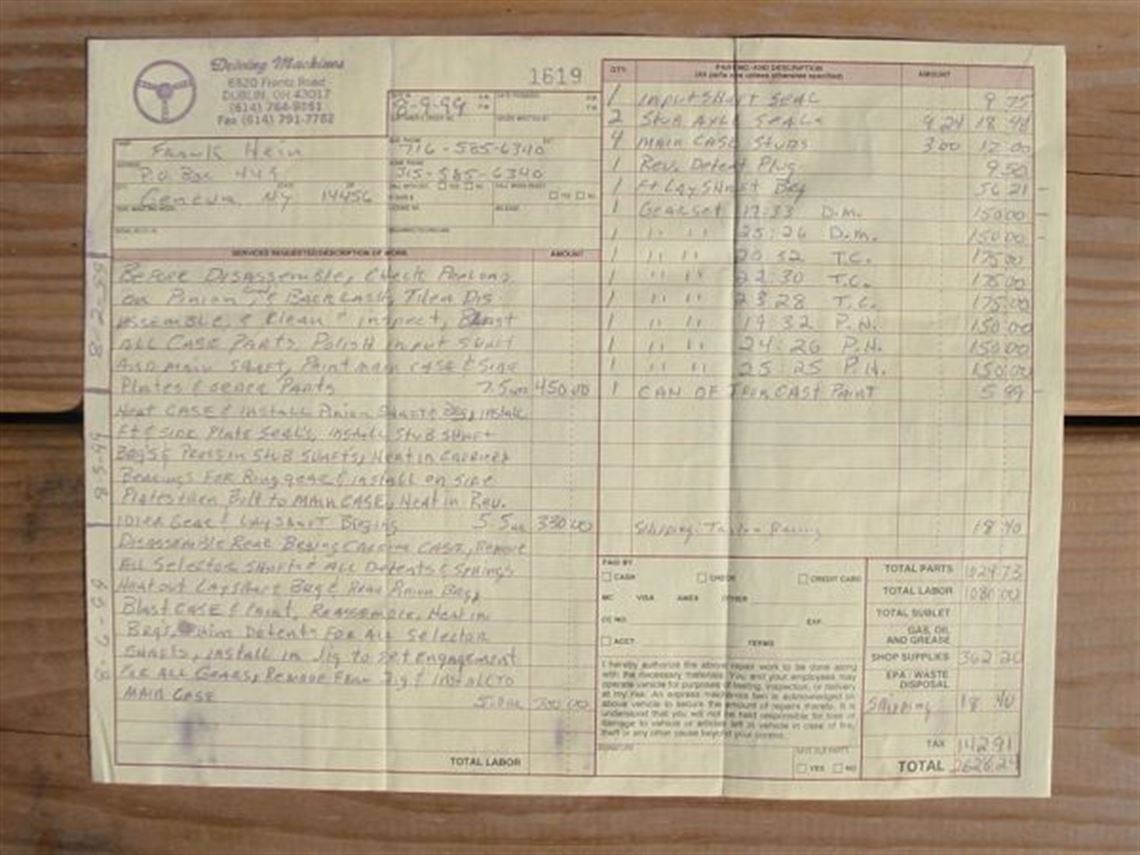 Driving Machines
6520 Frantz Road
DUBLIN, OH 43017
(614) 764-9861
Fax (614) 791-7762
1619
8-9-99
Frank Hein
716-585-6340
P.O. Box 449
315-585-6340
Geneva, NY 14456
SERVICES REQUESTED/DESCRIPTION OF WORK AMOUNT
Before Disassemble, Check
on Pinion & Backlash, Then Dis
assemble, & Clean & inspect, Blast
ALL CASE Parts Polish input Shaft
And main Shaft, Paint main case & Side
Plates & other Parts 450.00
Heat CASE & install Pinion Shaft & Beg, install
Ft & Side Plate Seal's, install Stub Shaft
Beg's & Press in Stub Shaft's, Heat in Carrier
Bearings For Ring gear & install on Side
Plates then Bolt to MAIN CASE, Heat in Rev.
IDler Gear & LAY Shaft 5.5 330.00
Disassemble Rear CASE, Remove
All Selector Shaft & ALL Detents & Springs
Heat out Layshaft Beg & Rear Pinion Beg,
Blast CASE & Paint, Reassemble, Heat in
Begs, Shim Detents FOR ALL Selector
Shafts, install in Jig to set Engagement
For ALL Gears, Remove From Jig & Install to
MAIN CASE 5.0 300.00
TOTAL LABOR
8-2-99
8-5-99
QTY. PART NO. AND DESCRIPTION AMOUNT
(All parts are unless otherwise specified)
1 Input Shaft Seal 9 75
2 Stub Axle Seals 9 24 18 48
4 MAIN CASE Studs 3 00 12 00
1 Rev. Detent Plug 9 50
1 Ft Lay Shaft Beg 56 21
1 Gearset 17:33 D.M. 150 00
1 " " 25:26 D.M. 150 00
1 " " 20:32 T.C. 175 00
1 " " 22:30 T.C. 175 00
1 " " 23:28 T.C. 175 00
1 " " 19:32 P.N. 150 00
1 " " 24:26 P.N. 150 00
1 " " 25:25 P.N. 150 00
1 CAN OF CAST PAINT 5 99
Shipping: Racing 18 40
PAID BY
CASH CREDIT CARD
MC VISA AMEX OTHER
CC NO. EXP.
ACCT. TERMS
I hereby authorize the above repair work to be done along
with the necessary materials. You and your employees may
operate vehicle for purposes of testing, inspection, or delivery
at my risk. An express mechanics lien is acknowledged on
above vehicle to secure the amount of repairs thereto. It is
understood that you will not be held responsible for loss or
damage to vehicle or articles left in vehicle in case of fire,
theft or any other cause beyond your control.
YES NO
TOTAL PARTS 1024 73
TOTAL LABOR 1080 00
TOTAL SUBLET
GAS, OIL
AND GREASE
SHOP SUPPLIES 362 20
EPA / WASTE
DISPOSAL
Shipping 18 40
TAX 142 91
TOTAL 2628.24